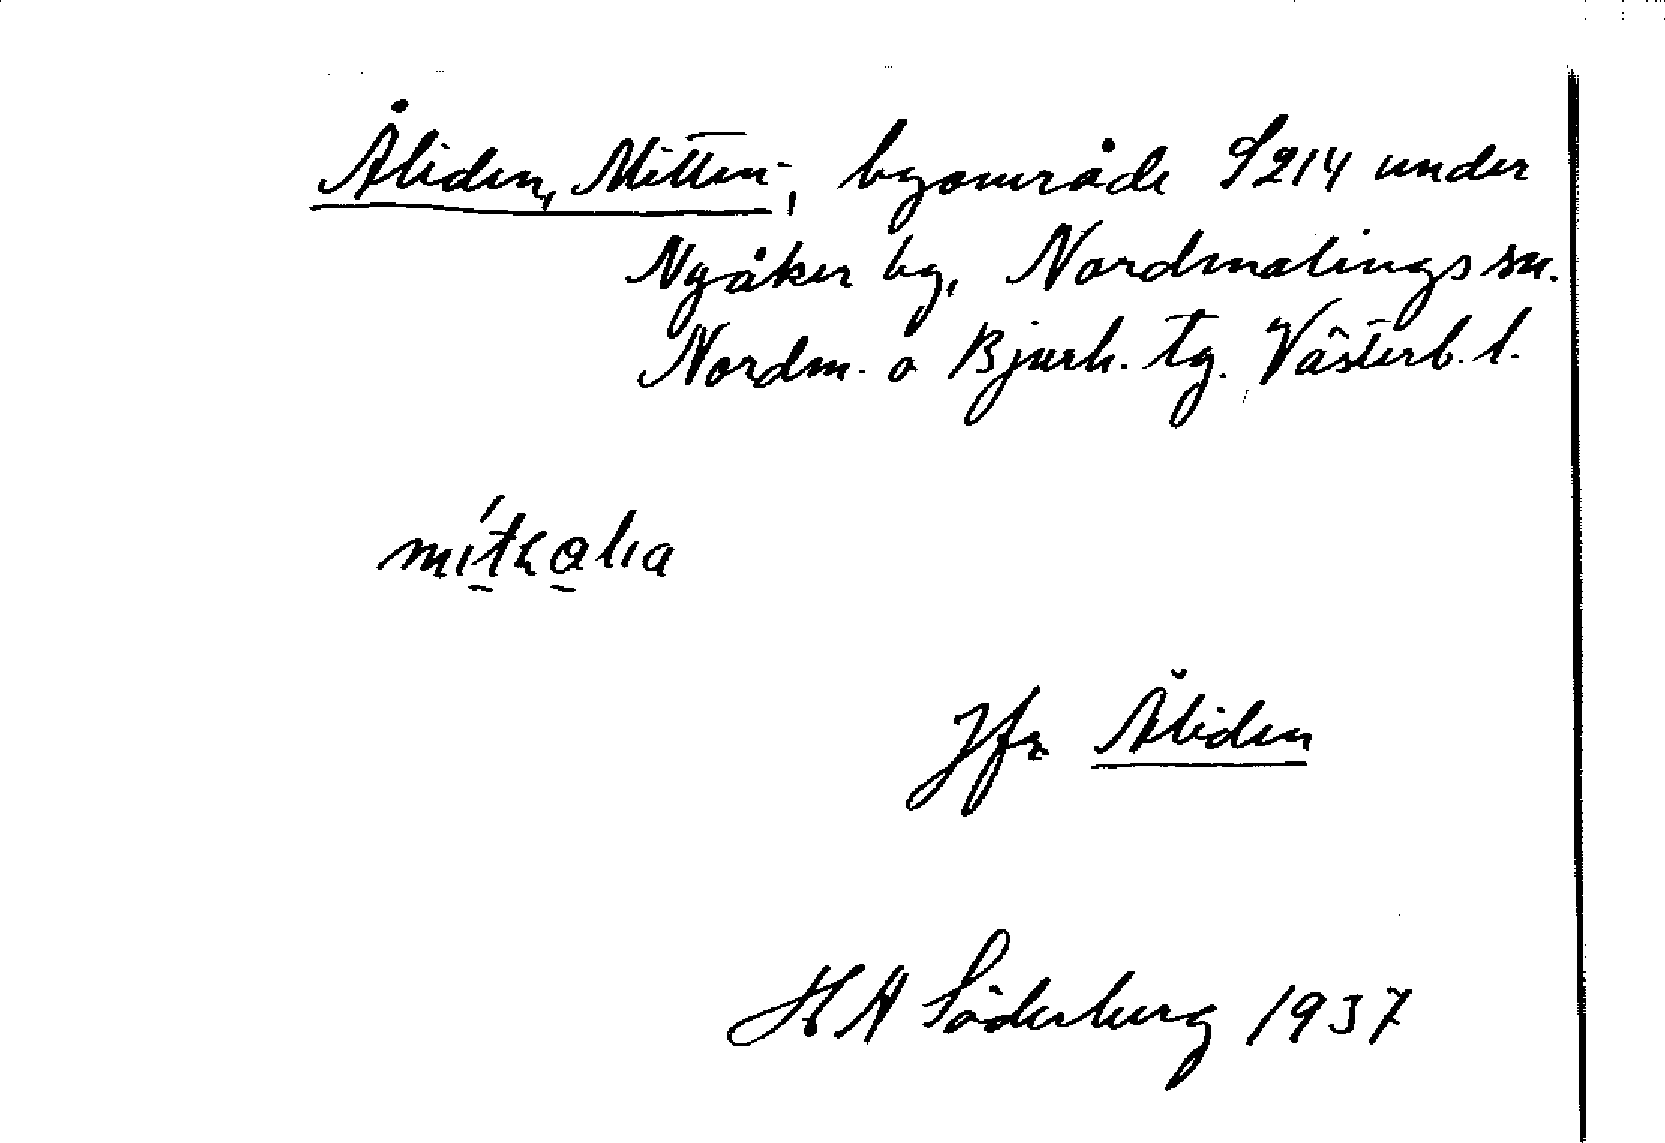 Åliden, Mitten-, byområde S214 under
Nyåker by, Nordmalings sn.
Nordm. o Bjurh. tg. Västerb. l.
Jfr Åliden
H A Söderberg 1937